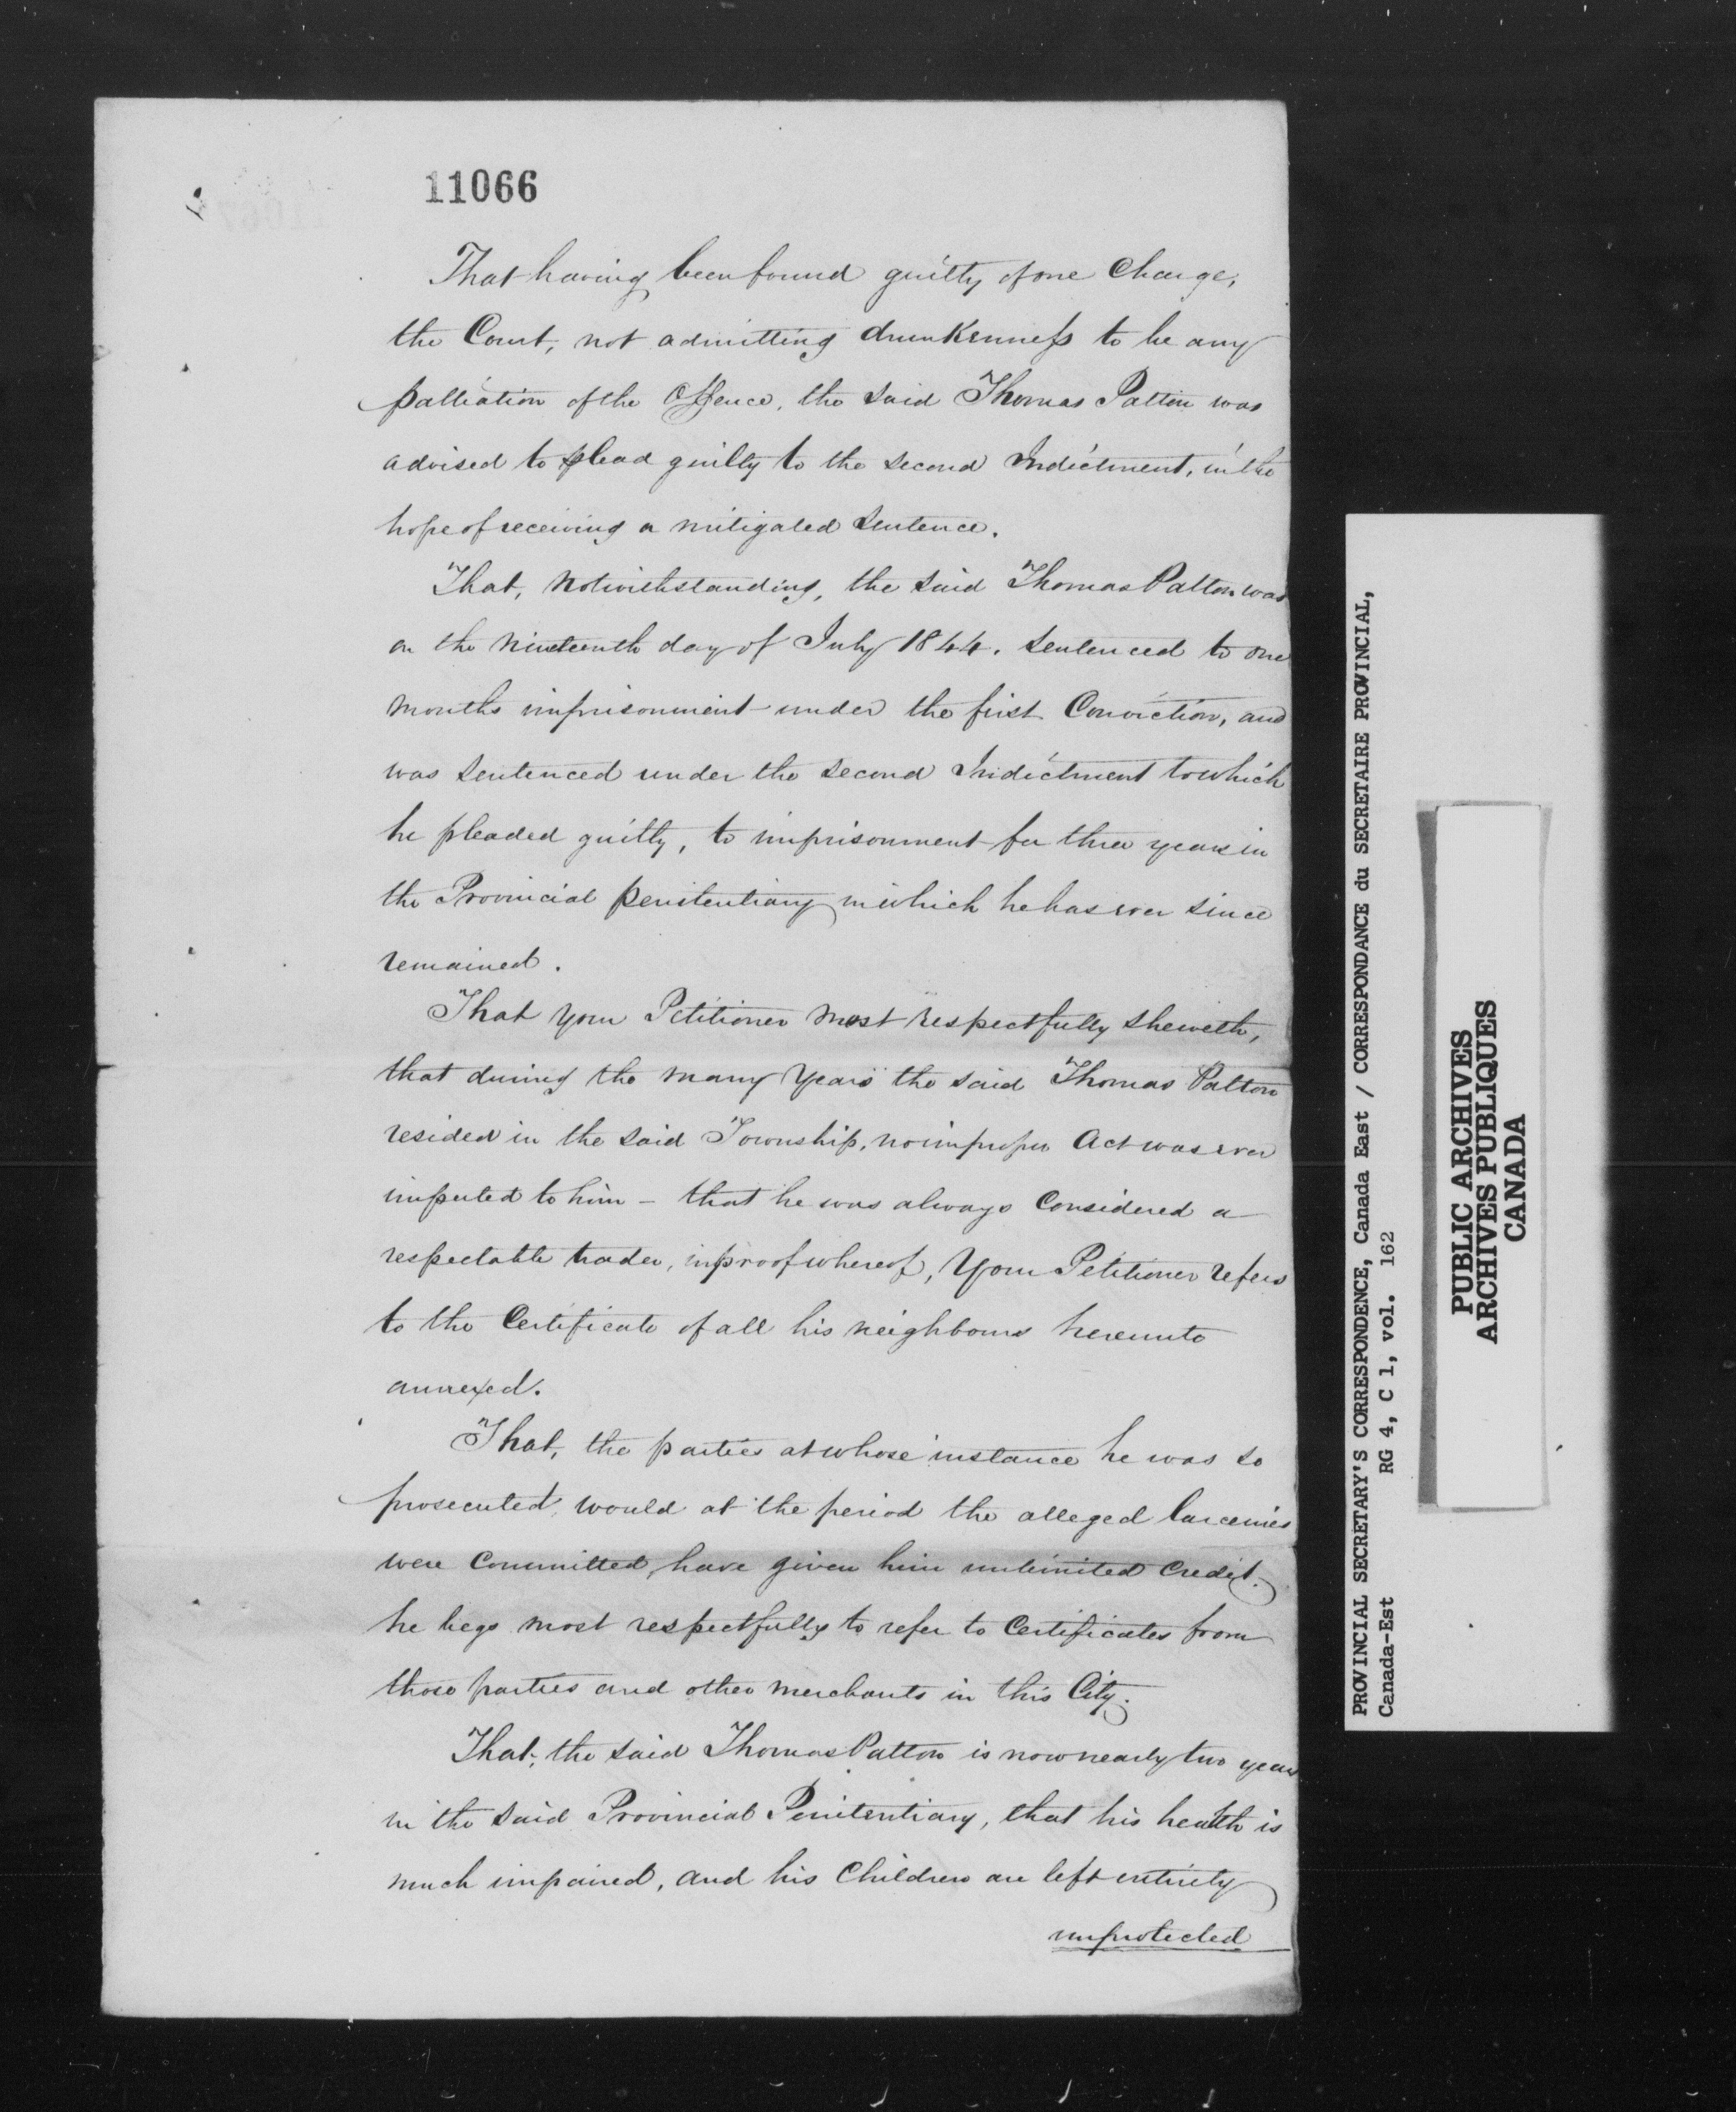 11066
That having been found guilty of one Charge,
the Court, not admitting drunkenness to be any
palliation of the Offence, the said Thomas Patton was
advised to plead guilty to the second Indictment, in the
hope of receiving a mitigated Sentence.
That, Notwithstanding, the said Thomas Patton was
on the Nineteenth day of July 1844. sentenced to one
months imprisonment under the first Conviction, and
was sentenced under the second Indictment to which
he pleaded guilty, to imprisonment for three years in
the Provincial penitentiary in which he has ever since
remained.
That your Petitioner most respectfully sheweth,
that during the many Years the said Thomas Patton
resided in the said Township, no improper Act was ever
imputed to him – that he was always Considered a
respectable trader, in proof whereof, Your Petitioner refers
to the Certificate of all his neighbours hereunto
annexed.
That, the parties at whose instance he was so
prosecuted, would at the period the alleged larcenies
were Committed, have given him unlimited Credit.
he begs most respectfully to refer to Certificates from
those parties and other Merchants in this City.
That, the said Thomas Patton is now nearly two years
in the said Provincial Penitentiary, that his health is
much impaired, and his Children are left entirely
unprotected
PROVINCIAL SECRETARY'S CORRESPONDENCE, Canada East / CORRESPONDANCE du SECRETAIRE PROVINCIAL,
Canada-Est RG 4, C 1, vol. 162
PUBLIC ARCHIVES
ARCHIVES PUBLIQUES
CANADA